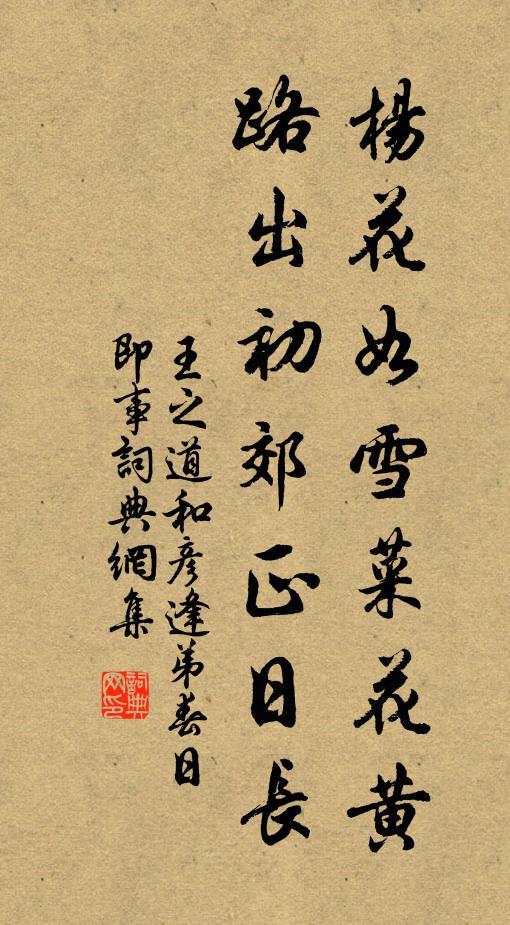 楊花如雪菜花黃
路出初郊正日長
王之道和彥逢弟春日
即事詞典網集
詞典
網印